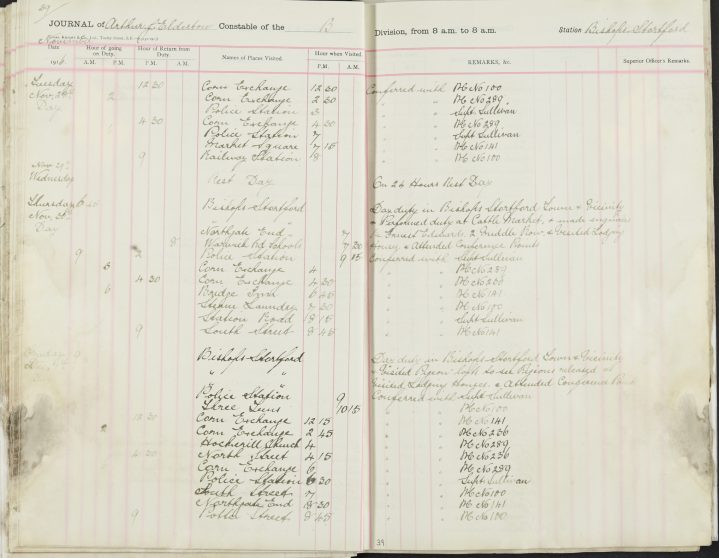 39
JOURNAL of Arthur J. Constable of the B Division, from 8 a.m. to 8 a.m. Station Bishops Stortford
November 1916
Hour of going on Duty. Hour of Return from Duty. Names of Places Visited. Hour when Visited. REMARKS, &c. Superior Officer's Remarks.
A.M. P.M. A.M. P.M. P.M. A.M.
Tuesday 12 30 Corn Exchange 12 30 Conferred with PC No 100
Nov. 28th 2 Corn Exchange 2 30 " " PC No 289
Day Police Station 3 " " Supt Sullivan
4 30 Corn Exchange 4 30 " " PC No 289
Police Station 7 " " Supt Sullivan
Market Square 7 15 " " PC No 141
9 Railway Station 8 " " PC No 100
Nov 29th
Wednesday Rest Day On 24 Hours Rest Day
Thursday Bishops Stortford Day duty in Bishops Stortford Town & Vicinity
Nov. 30th " " & Performed duty at Cattle Market, & made enquiries
Day Northgate End 7 Ernest Edwards, 2 Row, & Visited Lodging
8 Warwick Rd Schools 7 30 Houses, & Attended Conference Points
9 2 Police Station 9 15 Conferred with Supt Sullivan
3 Corn Exchange 4 " " PC No 289
4 30 Corn Exchange 4 30 " "
6 Bridge 6 45 " " PC No 141
Steam Laundry " "
Station Road 8 15 " " Supt Sullivan
9 South Street 8 45 " " PC No 141
Bishops Stortford Day duty in Bishops Stortford Town & Vicinity
" " & Visited Pigeon loft to see Pigeons released at
" " Visited Lodging Houses, & Attended Conference Points
Police Station 9 Conferred with Supt Sullivan
Three Tuns 10 15 " " PC No 100
12 30 Corn Exchange 12 15 " " PC No 141
Corn Exchange 2 45 " " PC No 236
Hockerill Church 4 " " PC No 289
4 30 North Street 4 15 " " PC No 236
Corn Exchange 6 " " PC No 289
Police Station 6 30 " " Supt Sullivan
South Street 7 " " PC No 100
Northgate End 8 30 " " PC No 141
9 Potter Street 8 45 " " PC No 100
39